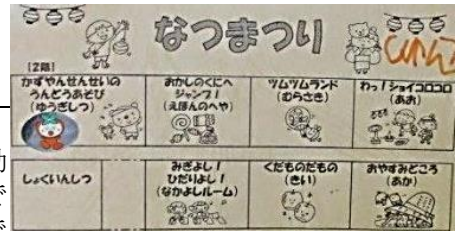 なつまつり
[2階]
かずやんせんせいの
うんどうあそび
(ゆうぎしつ)
おかしのくにへ
ジャンプ!
(えほんのへや)
ツムツムランド
(むらさき)
わっ!ショイコロコロ
(あお)
しょくいんしつ
みぎよし!
ひだりよし!
(なかよしルーム)
くだものだもの
(きい)
おやすみどころ
(あか)